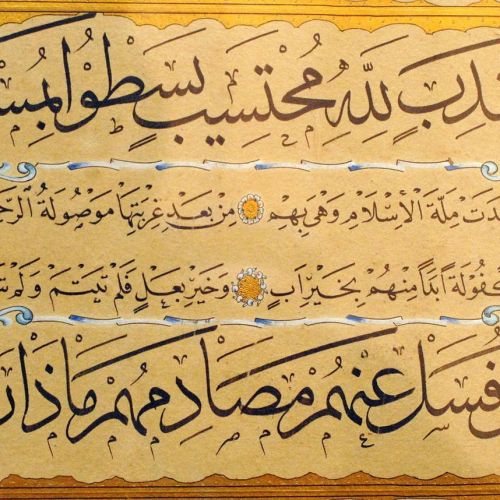 ـدِبٍ لِلّٰهِ مُحْتَسِبٍ يَسْطُو
ـدَتْ مِلَّةُ الْاِسْلَامِ وَهْيَ بِهِمْ مِنْ بَعْدِ غُرْبَتِهَا مَوْصُولَةَ الرَّحِـ
ـكْفُولَةً اَبَدًا مِنْهُمْ بِخَيْرِ اَبٍ وَخَيْرِ بَعْلٍ فَلَمْ تَيْتَمْ وَلَمْ
فَسَلْ عَنْهُمْ مُصَادِمَهُمْ مَاذَا ر